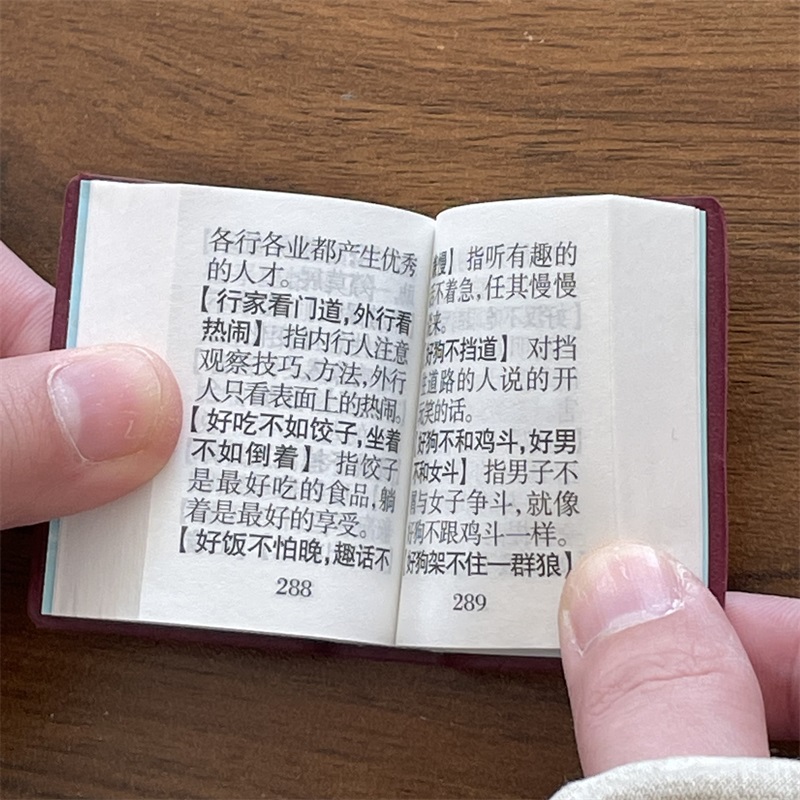 各行各业都产生优秀
的人才。
【行家看门道，外行看
热闹】 指内行人注意
观察技巧、方法，外行
人只看表面上的热闹。
【好吃不如饺子，坐着
不如倒着】 指饺子
是最好吃的食品，躺
着是最好的享受。
【好饭不怕晚，趣话不
288
慢】 指听有趣的
不着急，任其慢慢
来。
好狗不挡道】 对挡
道路的人说的开
玩笑的话。
好狗不和鸡斗，好男
不和女斗】 指男子不
与女子争斗，就像
好狗不跟鸡斗一样。
好狗架不住一群狼】
289